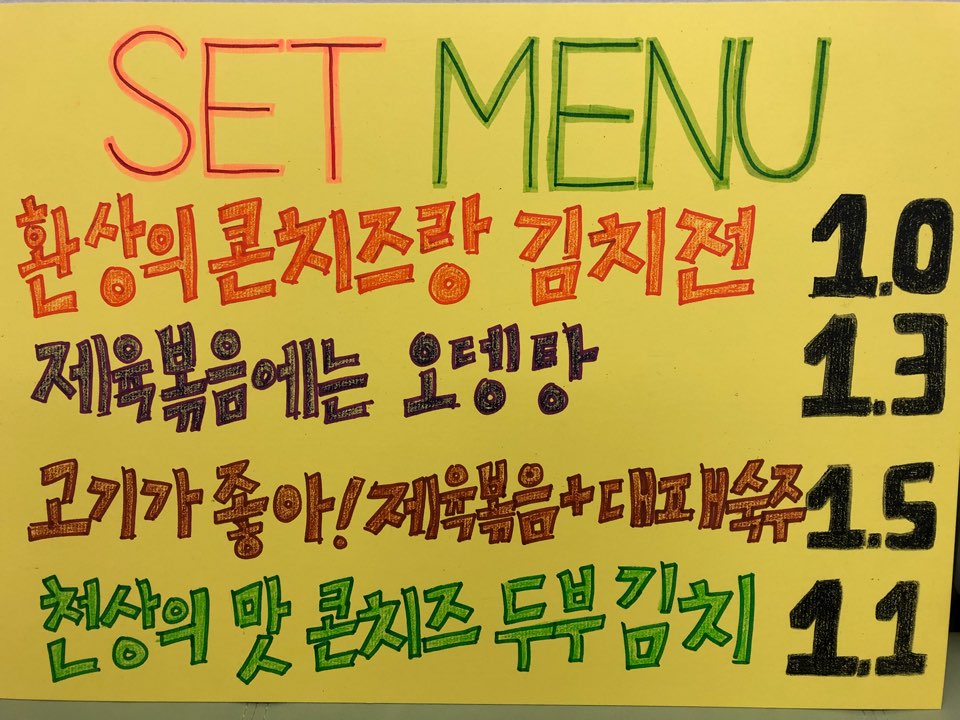 SET MENU
환상의 콘치즈랑 김치전 1.0
제육볶음에는 오뎅탕 1.3
고기가 좋아! 제육볶음+대패숙주 1.5
천상의 맛 콘치즈 두부김치 1.1